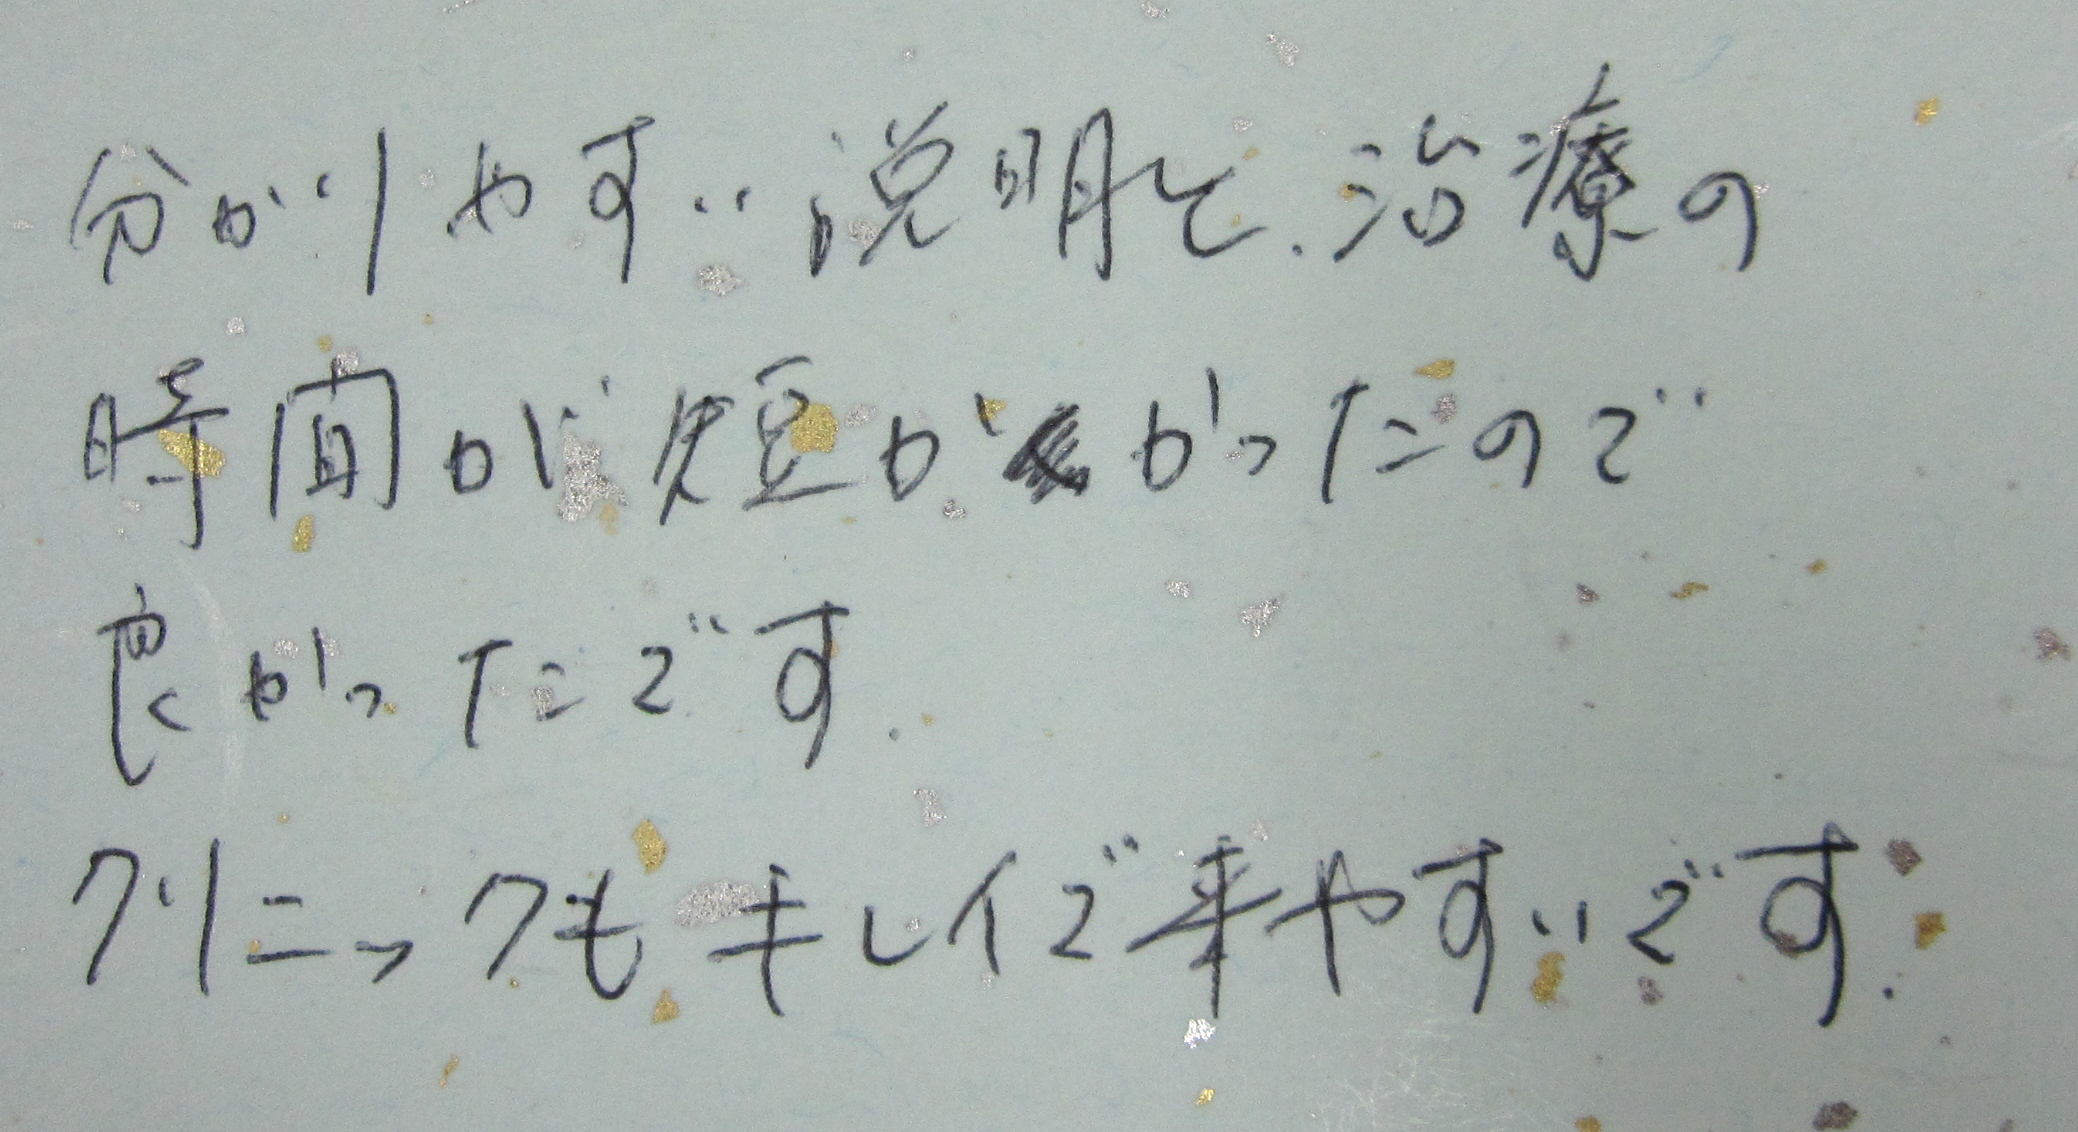 分かりやすい説明と、治療の
時間が短かかったので
良かったです.
クリニックもキレイで来やすいです.